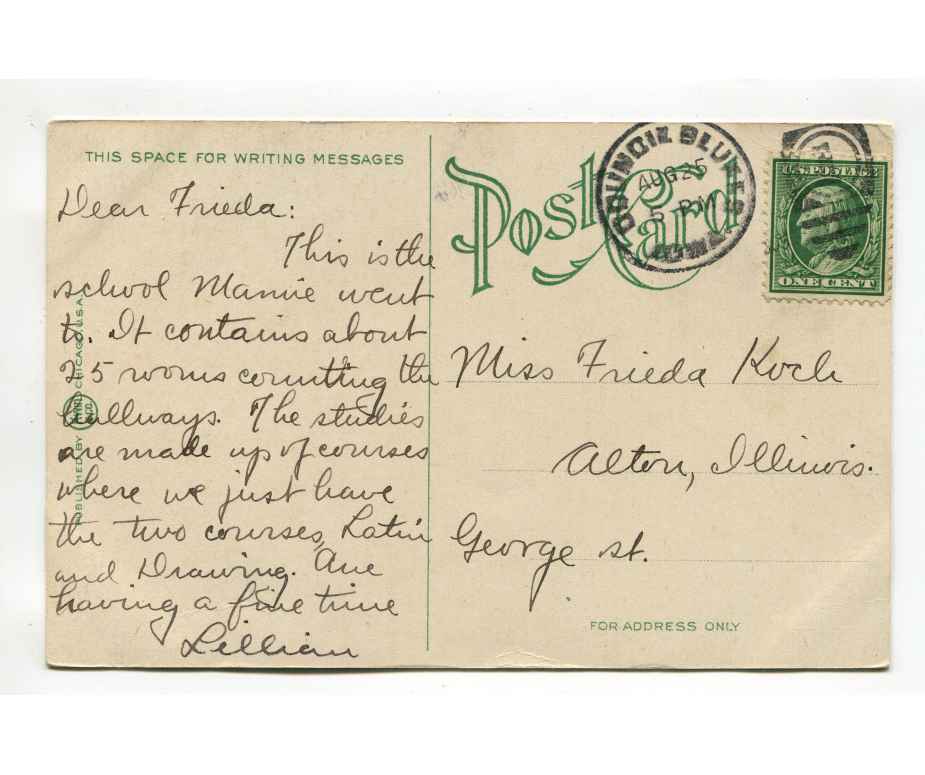 THIS SPACE FOR WRITING MESSAGES
Dear Frieda:
This is the
school Mamie went
to. It contains about
25 rooms counting the
hallways. The studies
are made up of courses
where we just have
the two courses, Latin
and Drawing. Are
having a fine time
Lillian
PUBLISHED BY
CHICAGO, U.S.A.
Post Card
COUNCIL BLUFFS
AUG 25
5 PM
IOWA
U.S. POSTAGE
ONE CENT
Miss Frieda Koch
Alton, Illinois.
George st.
FOR ADDRESS ONLY